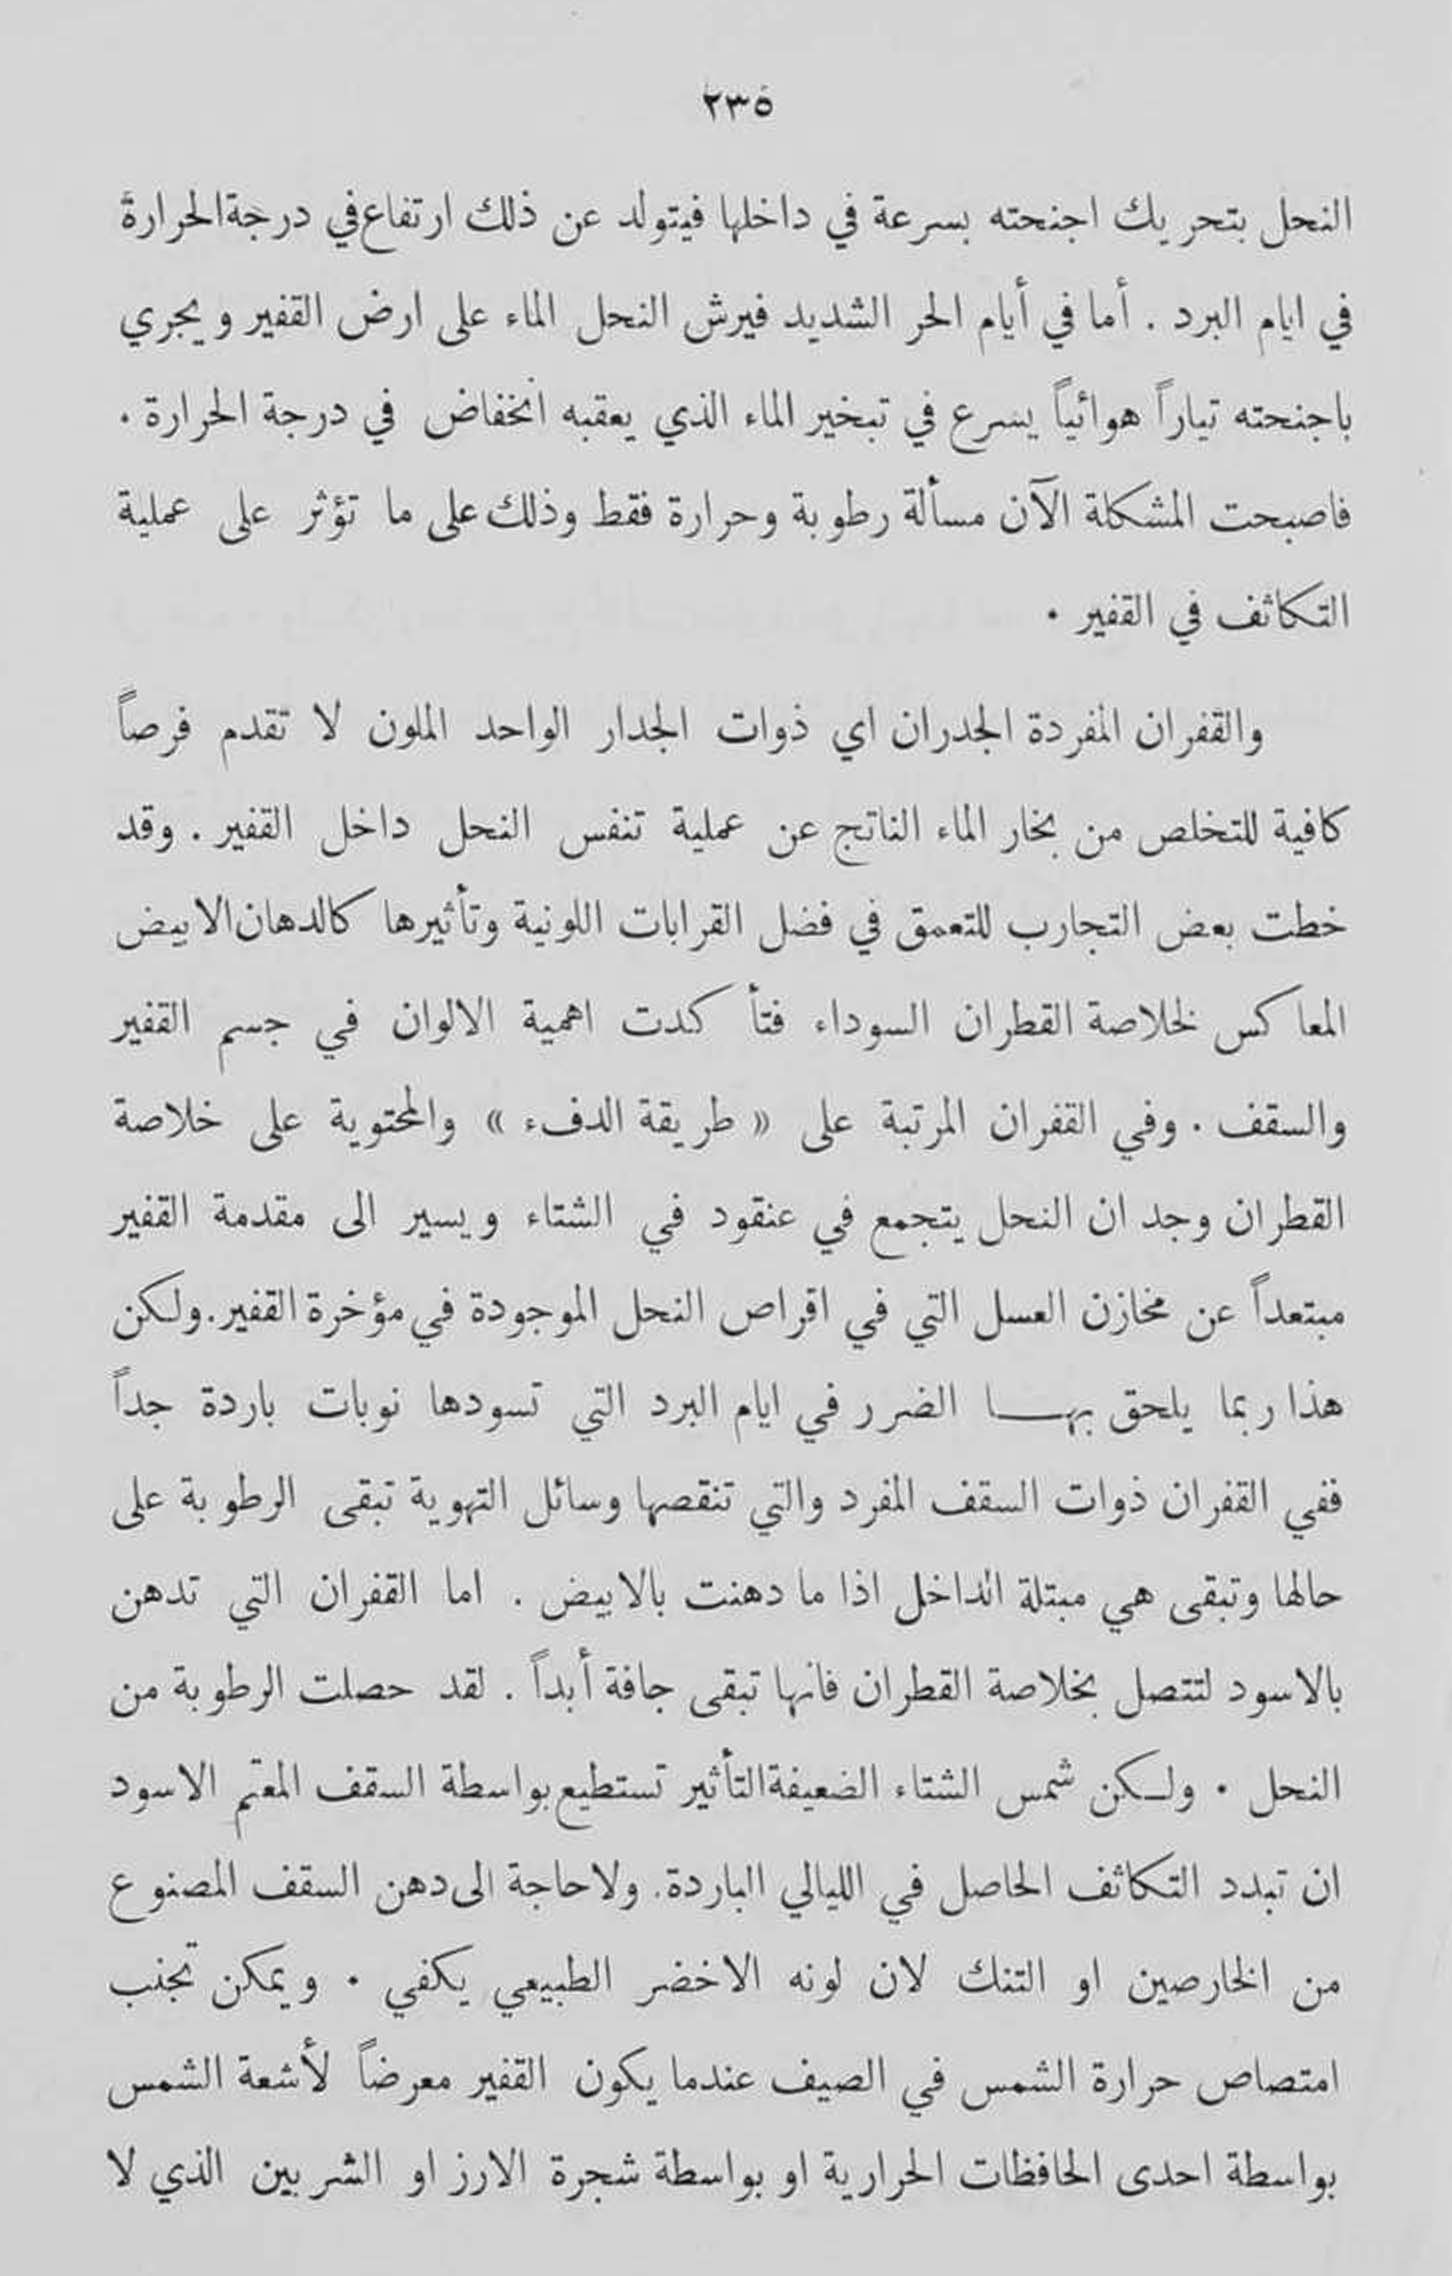 ٢٣٥
النحل بتحريك اجنحته بسرعة في داخلها فيتولد عن ذلك ارتفاع في درجة الحرارة
في ايام البرد . أما في أيام الحر الشديد فيرش النحل الماء على ارض القفير ويجري
باجنحته تياراً هوائياً يسرع في تبخير الماء الذي يعقبه انخفاض في درجة الحرارة .
فاصبحت المشكلة الآن مسألة رطوبة وحرارة فقط وذلك على ما تؤثر على عملية
التكاثف في القفير .
والقفران المفردة الجدران اي ذوات الجدار الواحد الملون لا تقدم فرصاً
كافية للتخلص من بخار الماء الناتج عن عملية تنفس النحل داخل القفير . وقد
خطت بعض التجارب للتعمق في فضل القرابات اللونية وتأثيرها كالدهان الابيض
المعاكس لخلاصة القطران السوداء فتأكدت اهمية الالوان في جسم القفير
والسقف . وفي القفران المرتبة على « طريقة الدفء » والمحتوية على خلاصة
القطران وجد ان النحل يتجمع في عنقود في الشتاء ويسير الى مقدمة القفير
مبتعداً عن مخازن العسل التي في اقراص النحل الموجودة في مؤخرة القفير. ولكن
هذا ربما يلحق بهـا الضرر في ايام البرد التي تسودها نوبات باردة جداً
ففي القفران ذوات السقف المفرد والتي تنقصها وسائل التهوية تبقى الرطوبة على
حالها وتبقى هي مبتلة الداخل اذا ما دهنت بالابيض . اما القفران التي تدهن
بالاسود لتتصل بخلاصة القطران فانها تبقى جافة أبداً . لقد حصلت الرطوبة من
النحل . ولـكن شمس الشتاء الضعيفة التأثير تستطيع بواسطة السقف المعتم الاسود
ان تبدد التكاثف الحاصل في الليالي الباردة. ولا حاجة الى دهن السقف المصنوع
من الخارصين او التنك لان لونه الاخضر الطبيعي يكفي . ويمكن تجنب
امتصاص حرارة الشمس في الصيف عندما يكون القفير معرضاً لأشعة الشمس
بواسطة احدى الحافظات الحرارية او بواسطة شجرة الارز او الشربين الذي لا